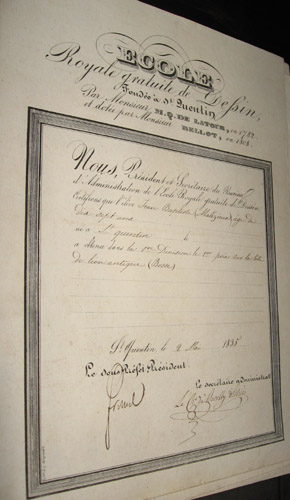 ECOLE
Royale gratuite de Dessin,
Fondée à St. Quentin
Par Monsieur M.Q. DE LATOUR, en 1782.
et dotée par Monsieur BELLOT, en 1801.
Nous, Président et Secrétaire du Bureau
d'Administration de l'Ecole Royale gratuite de Dessin
Certifions que l'élève Jean Baptiste agé de
dix sept ans
né à St. quentin le
a obtenu dans la 1ere Division le 1er prix sur la tête
de lion antique (Bosse)
St. Quentin, le 2 Mai 1835
Le sous Préfet Président.
Le secrétaire administratif